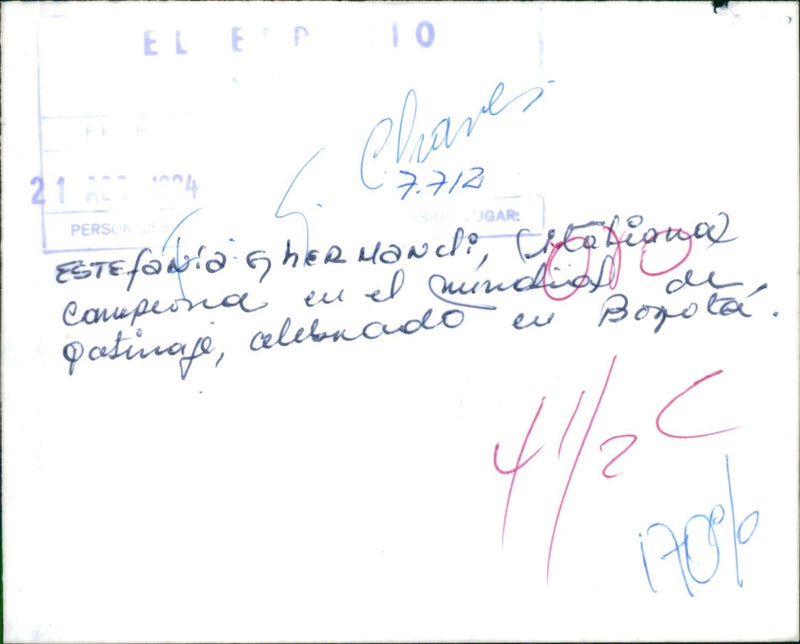 EL ESPACIO
21 AGO 1984
LUGAR:
Chaves
7.712
ESTEfaNía GhERNANdi, (Italiana)
campeona en el mundial de
patinaje, celebrado en Bogotá.
4 1/2 C
170%